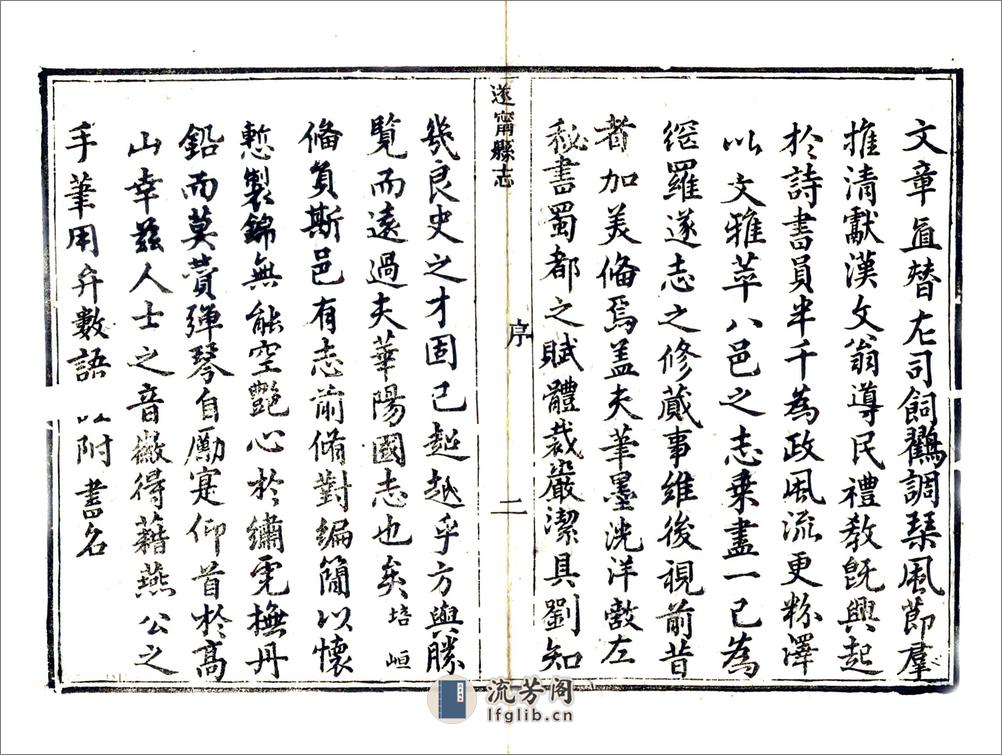 文章直替左司飼鶴調琴風節羣
推清獻漢文翁導民禮教既興起
於詩書員半千為政風流更粉澤
以文雅萃八邑之志乗畫一已為
網羅遂志之修蕆事維後視前昔
者加美俻焉盖夫華墨洸洋激左
秘書蜀都之賦體裁嚴潔具劉知
遂甯縣志
序
二
幾良史之才固已超越乎方輿勝
覽而遠過夫華陽國志也矣培峘
俻負斯邑有志前脩對編簡以懷
慙製錦無能空艷心於繡虎撫丹
鉛而莫賛彈琴自勵寔仰首於高
山幸兹人士之音徽得藉燕公之
手筆用弁數語以附書名
流芳阁
lfglib.cn